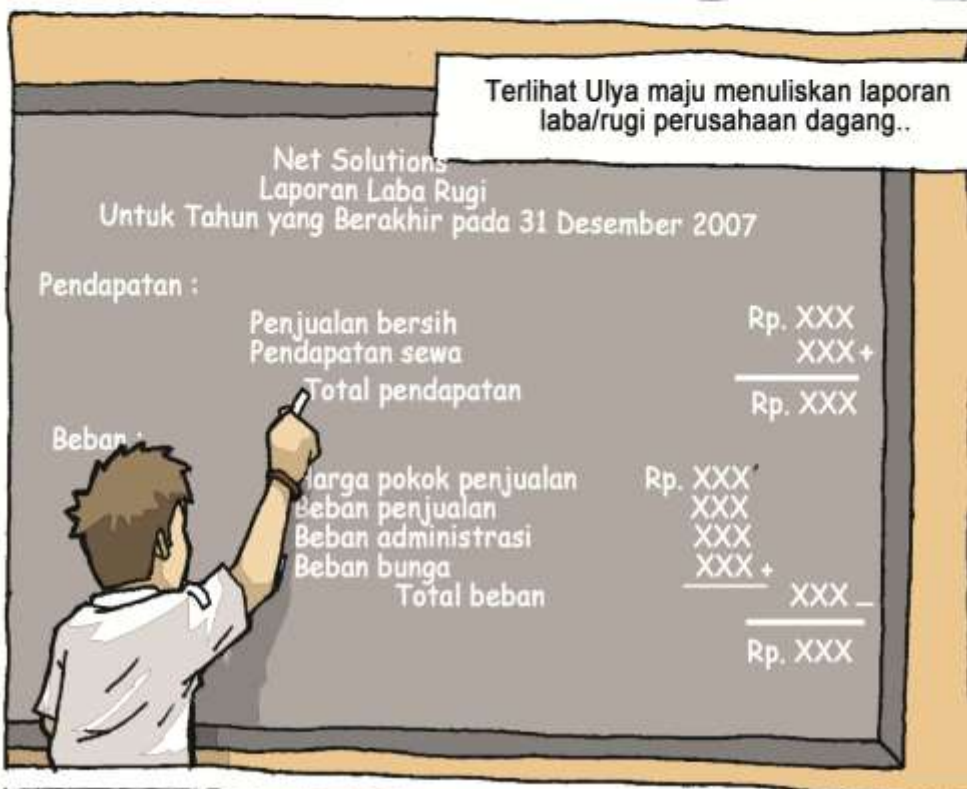 Terlihat Ulya maju menuliskan laporan
laba/rugi perusahaan dagang..
Net Solutions
Laporan Laba Rugi
Untuk Tahun yang Berakhir pada 31 Desember 2007
Pendapatan :
Penjualan bersih Rp. XXX
Pendapatan sewa XXX +
Total pendapatan Rp. XXX
Beban :
Harga pokok penjualan Rp. XXX
Beban penjualan XXX
Beban administrasi XXX
Beban bunga XXX +
Total beban XXX –
Rp. XXX